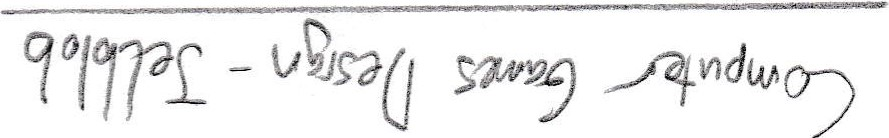 Computer Games Design - Jetblob